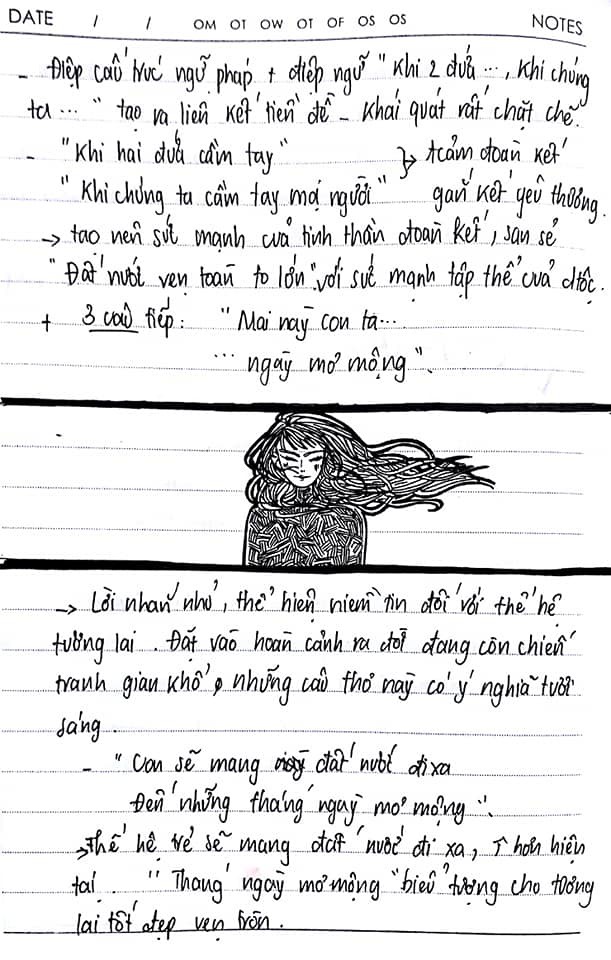 DATE / / OM OT OW OT OF OS OS NOTES
- Điệp cấu trúc ngữ pháp + điệp ngữ "Khi 2 đứa ..., khi chúng
ta ..." tạo ra liên kết tiền đề - khái quát rất chặt chẽ.
- "Khi hai đứa cầm tay" } t/cảm đoàn kết
"Khi chúng ta cầm tay mọi người" gắn kết yêu thương.
→ tạo nên sức mạnh của tinh thần đoàn kết, san sẻ
"Đất nước vẹn toàn to lớn" với sức mạnh tập thể của dtộc.
+ 3 câu tiếp: "Mai này con ta...
... ngày mơ mộng".
→ Lời nhắn nhủ, thể hiện niềm tin đối với thế hệ
tương lai. Đặt vào hoàn cảnh ra đời đang còn chiến
tranh gian khổ, những câu thơ này có ý nghĩa tươi
sáng.
- "Con sẽ mang đất nước đi xa
Đến những tháng ngày mơ mộng".
→ thế hệ trẻ sẽ mang đất nước đi xa, ↑ hơn hiện
tại. "Tháng ngày mơ mộng" biểu tượng cho tương
lai tốt đẹp vẹn tròn.